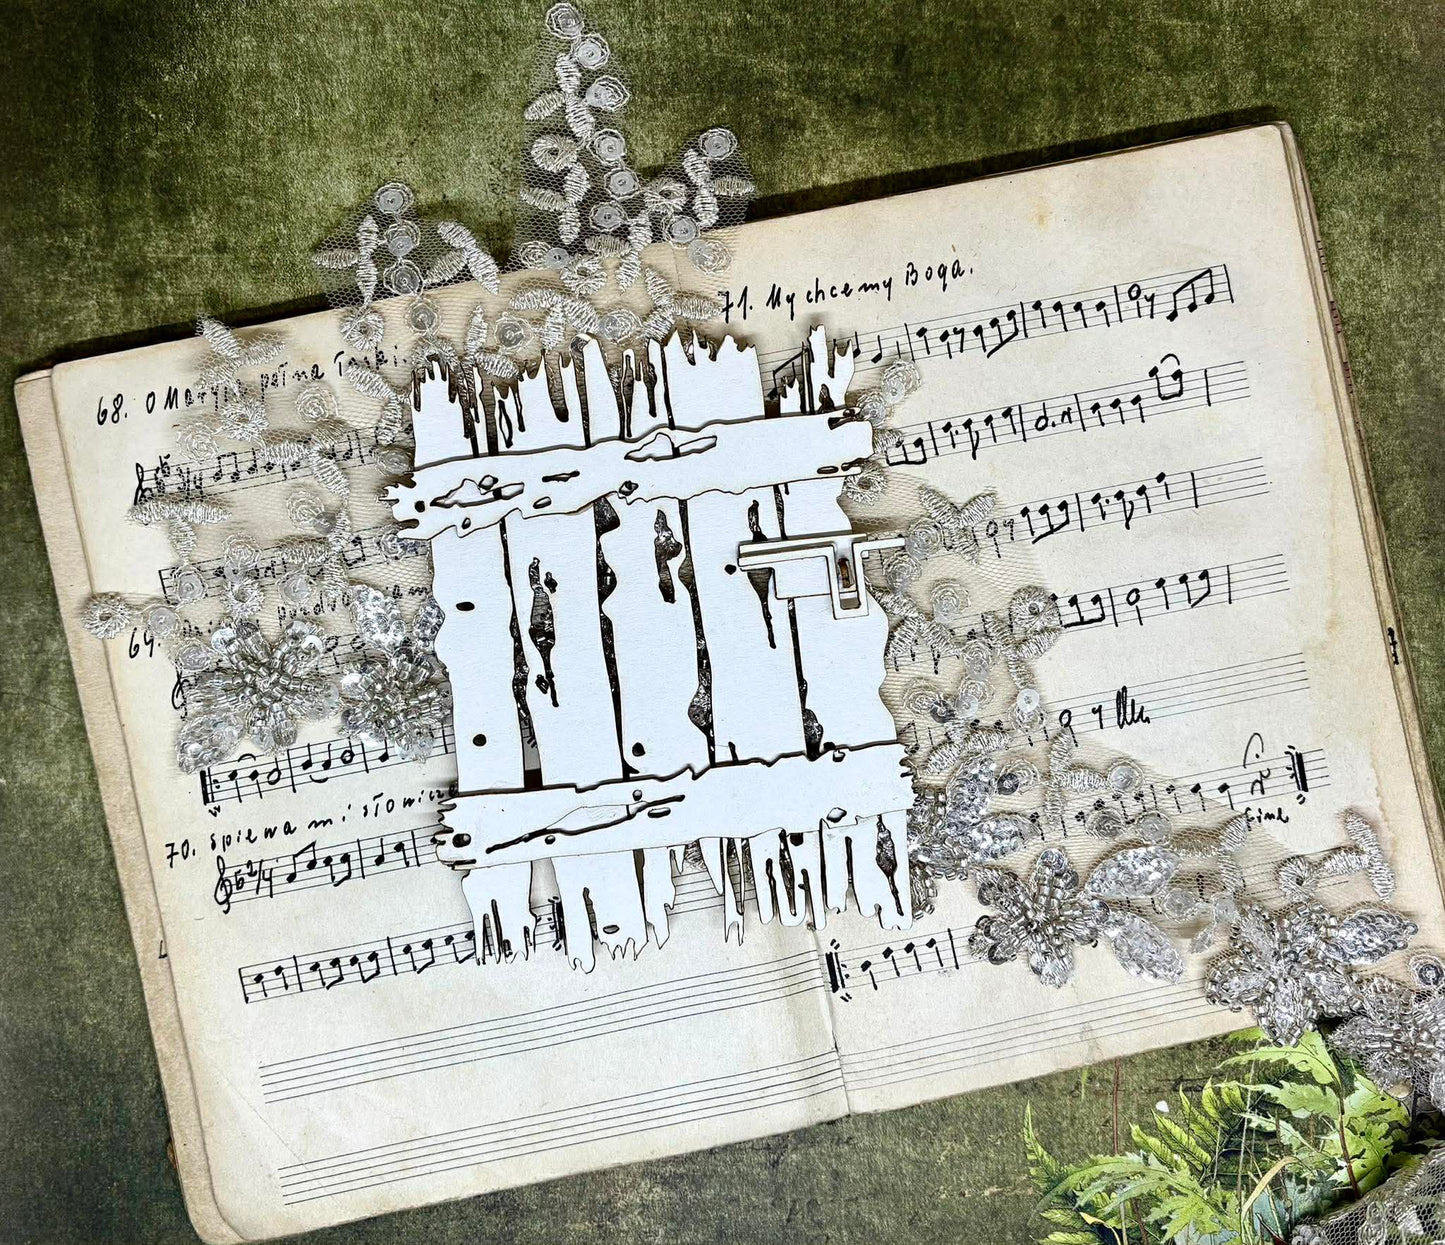 68. O Maryjo pełna Łaski.
69.
70. Śpiewa mi słowicze
71. My chcemy Boga.
fine